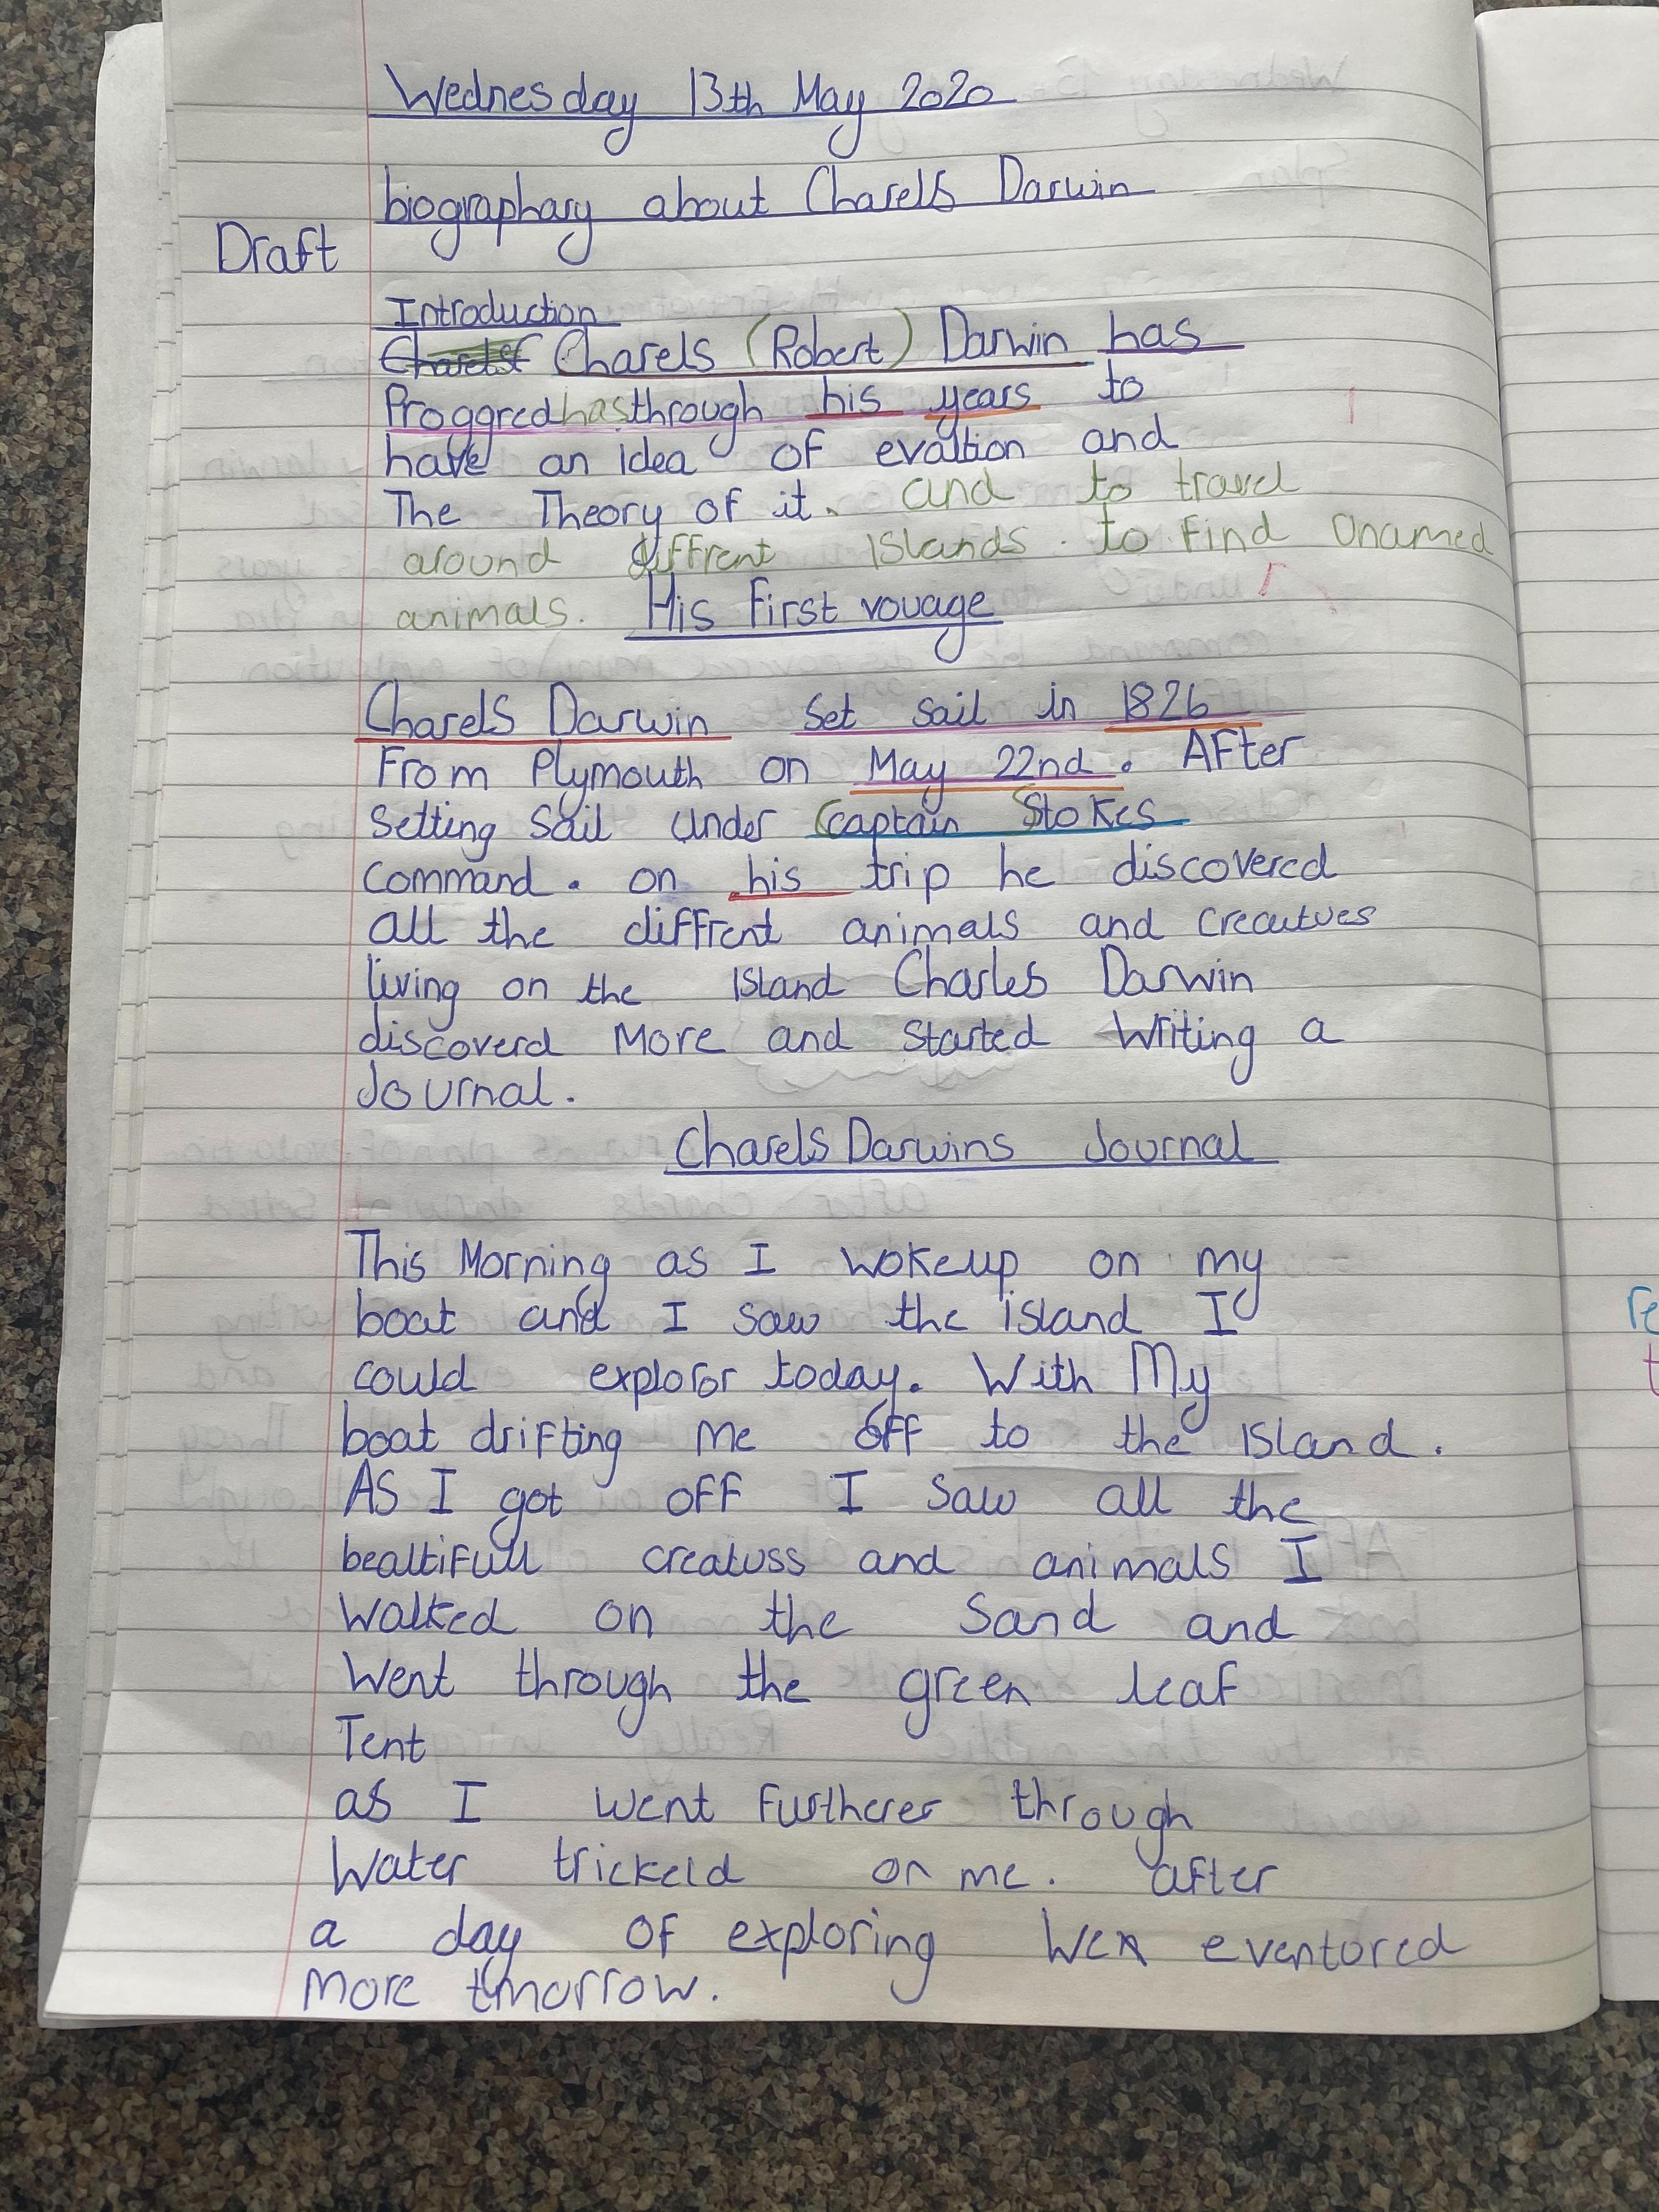 Wednesday 13th May 2020
biographary about Charels Darwin
Draft
Introduction
Charels Charels (Robert) Darwin has
Proggred has through his years to
have an idea of evaltion and
The Theory of it. and to travel
around diffrent Islands. to find Unamed
animals.
His First vouage
Charels Darwin set sail in 1826
From Plymouth on May 22nd. After
Setting Sail under Captain Stokes
command. on his trip he discovered
all the diffrent animals and creautues
living on the Island Charles Darwin
discoverd More and Started Writing a
Journal.
Charels Darwins Journal
This Morning as I wokeup on my
boat and I saw the island I
could explofor today. With My
boat drifting me off to the Island.
AS I got off I saw all the
bealtifull creatuss and animals I
Walked on the Sand and
Went through the green leaf
Tent
as I went furtherer through
Water trickeld on me. after
a day of exploring Wen eventored
more tmorrow.
re
t